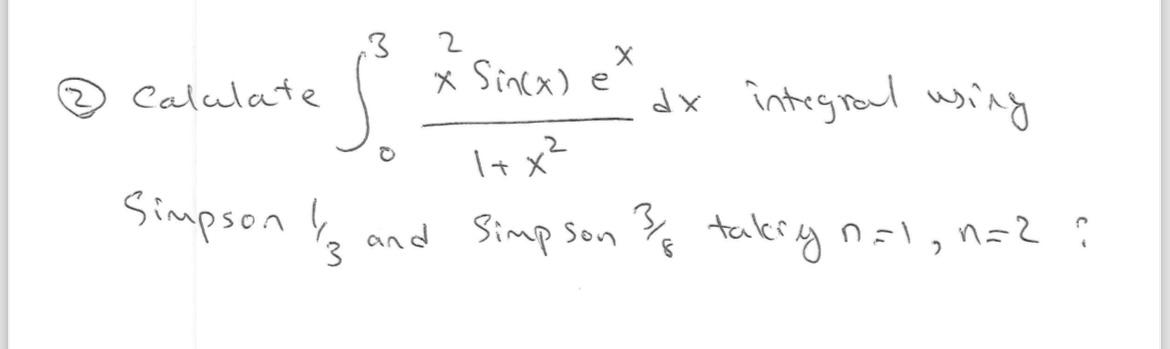 ② Calculate ∫₀³ x² Sin(x) eˣ / 1+x² dx integral using
Simpson 1/3 and Simpson 3/8 takiy n=1, n=2 ?